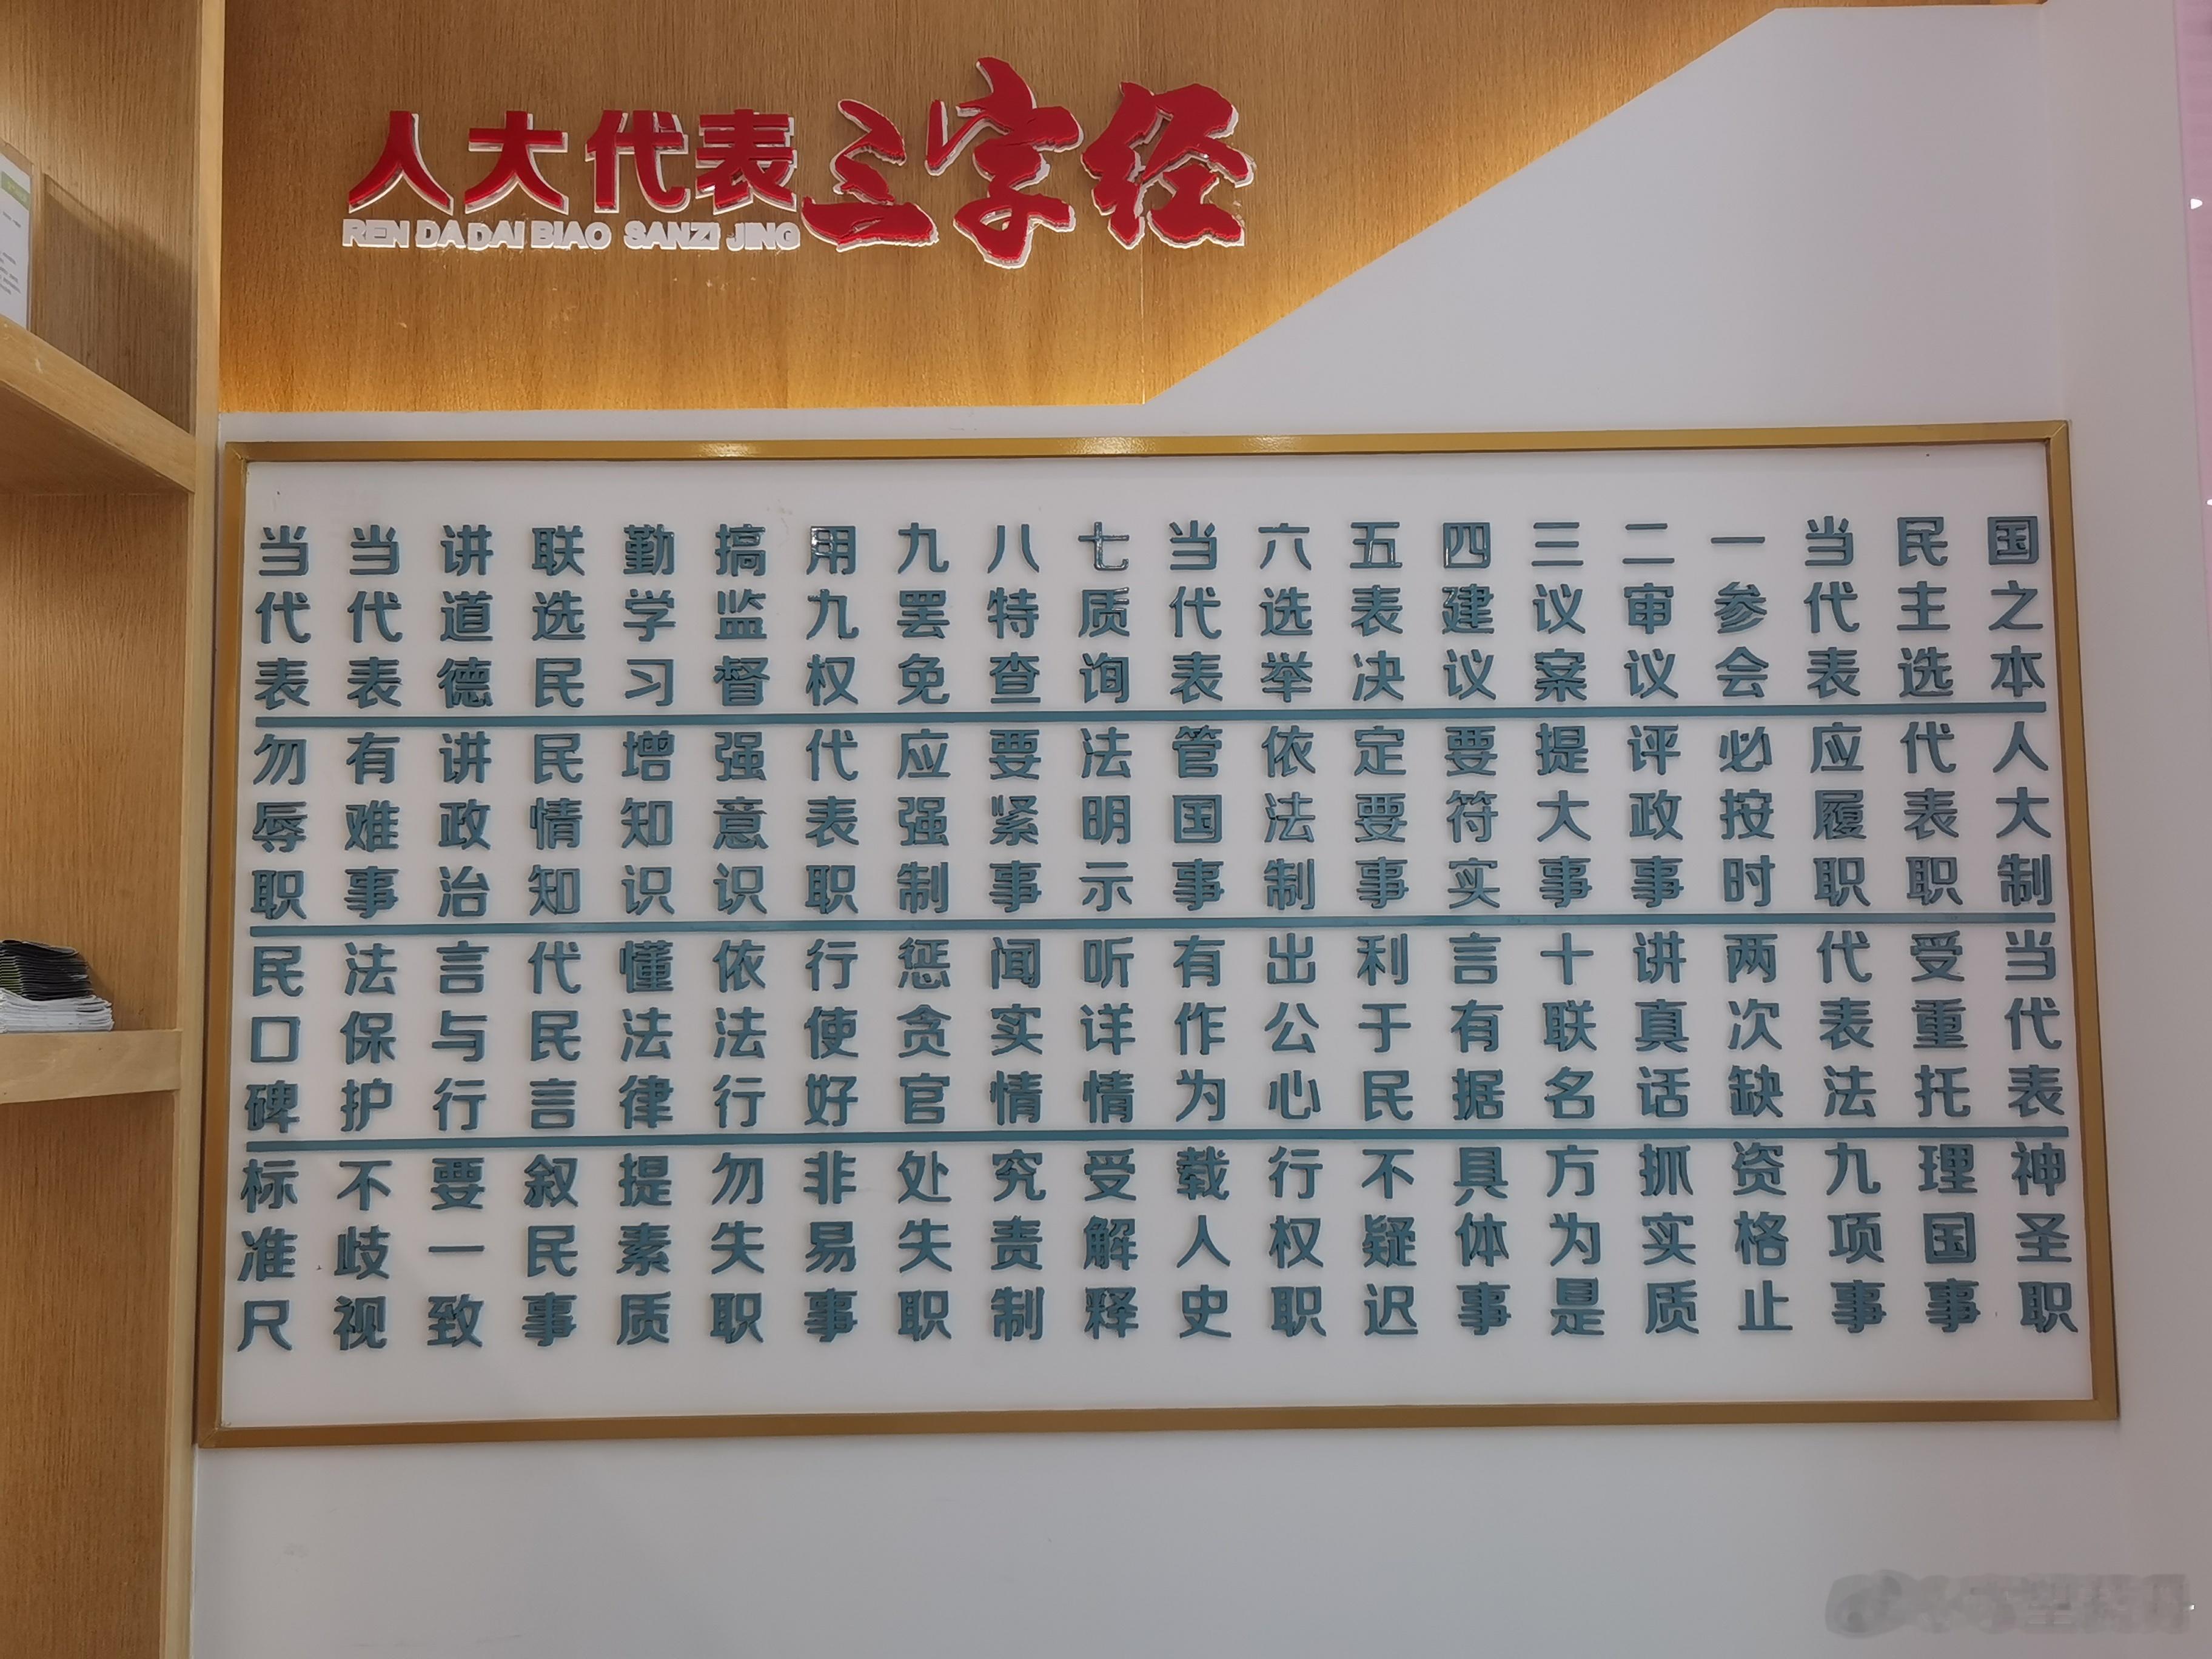 人大代表三字经
REN DA DAI BIAO SANZI JING
国之本 人大制 当代表 神圣职
民主选 代表职 受重托 理国事
当代表 应履职 代表法 九项事
一参会 必按时 两次缺 资格止
二审议 评政事 讲真话 抓实质
三议案 提大事 十联名 方为是
四建议 要符实 言有据 具体事
五表决 定要事 利于民 不疑迟
六选举 依法制 出公心 行权职
当代表 管国事 有作为 载人史
七质询 法明示 听详情 受解释
八特查 要紧事 闻实情 究责制
九罢免 应强制 惩贪官 处失职
用九权 代表职 行使好 非易事
搞监督 强意识 依法行 勿失职
勤学习 增知识 懂法律 提素质
联选民 民情知 代民言 叙民事
讲道德 讲政治 言与行 要一致
当代表 有难事 法保护 不歧视
当代表 勿辱职 民口碑 标准尺